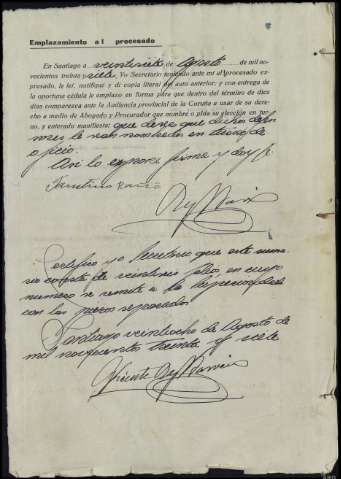 Emplazamiento al procesado
En Santiago a veintisiete de Agosto de mil no-
vecientos treinta y siete, Yo Secretario teniendo ante mí al procesado ex-
presado, le leí, notifiqué y dí copia literal del auto anterior; y con entrega de
la oportuna cédula le emplazo en forma para que dentro del término de diez
días comparezca ante la Audiencia provincial de la Coruña a usar de su dere-
cho a medio de Abogado y Procurador que nombre o pida su elección en tur-
no, y enterado manifiesta: que desea que dichos
mes le sean nombrados en turno de
oficio.
Así lo expresa firma y doy fe
Faustino
Certifico yo Secretario que este suma-
rio consta de veintiseis folios en cuyo
numero se remite a la Superioridad
con las piezas separadas
Santiago veintiocho de Agosto de
mil novecientos treinta y siete
Vicente Rey